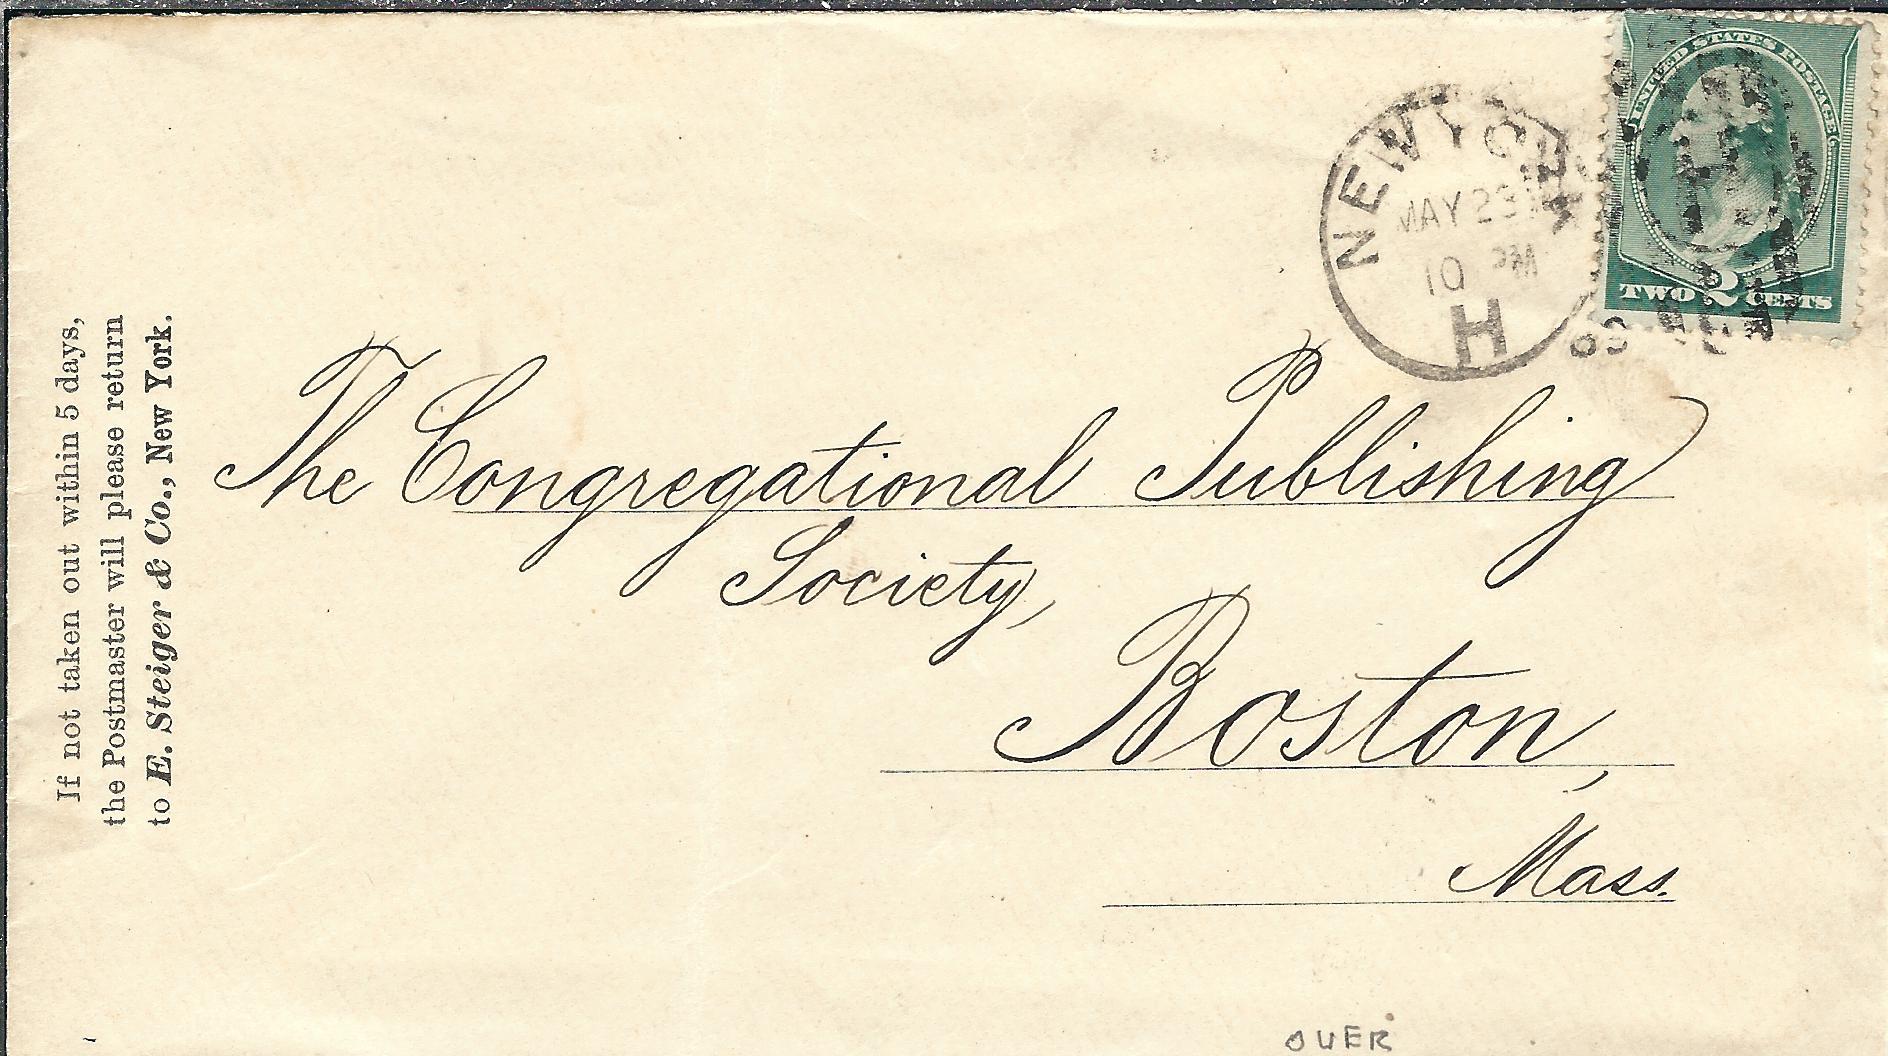 If not taken out within 5 days,
the Postmaster will please return
to E. Steiger & Co., New York.
NEW YORK
MAY 23
10 PM
H
UNITED STATES POSTAGE
TWO 2 CENTS
The Congregational Publishing
Society,
Boston,
Mass.
OVER